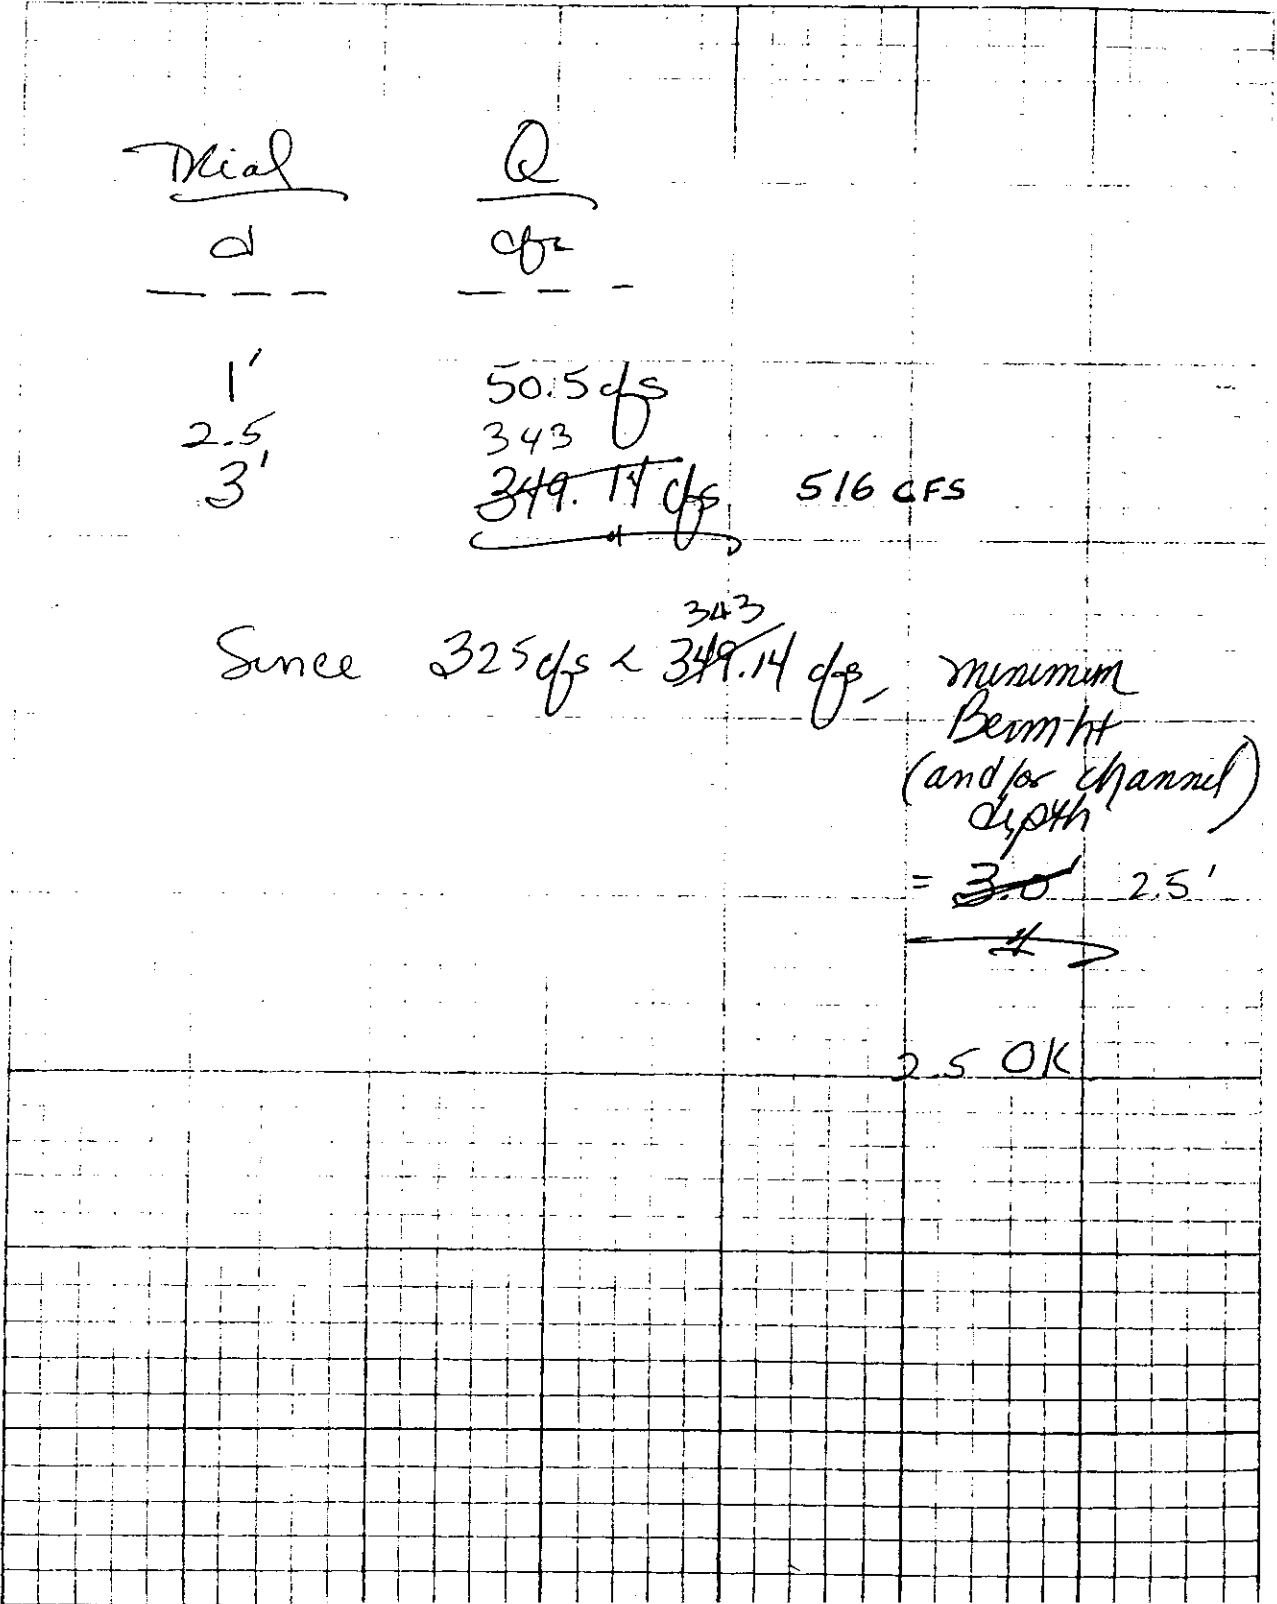 Trial Q
d cfs
— — — — — -
1' 50.5 cfs
2.5 343
3' 349.14 cfs 516 CFS
343
Since 325 cfs < 349.14 cfs, minimum
Berm ht
(and/or channel)
depth
= 3.0' 2.5'
2.5 OK